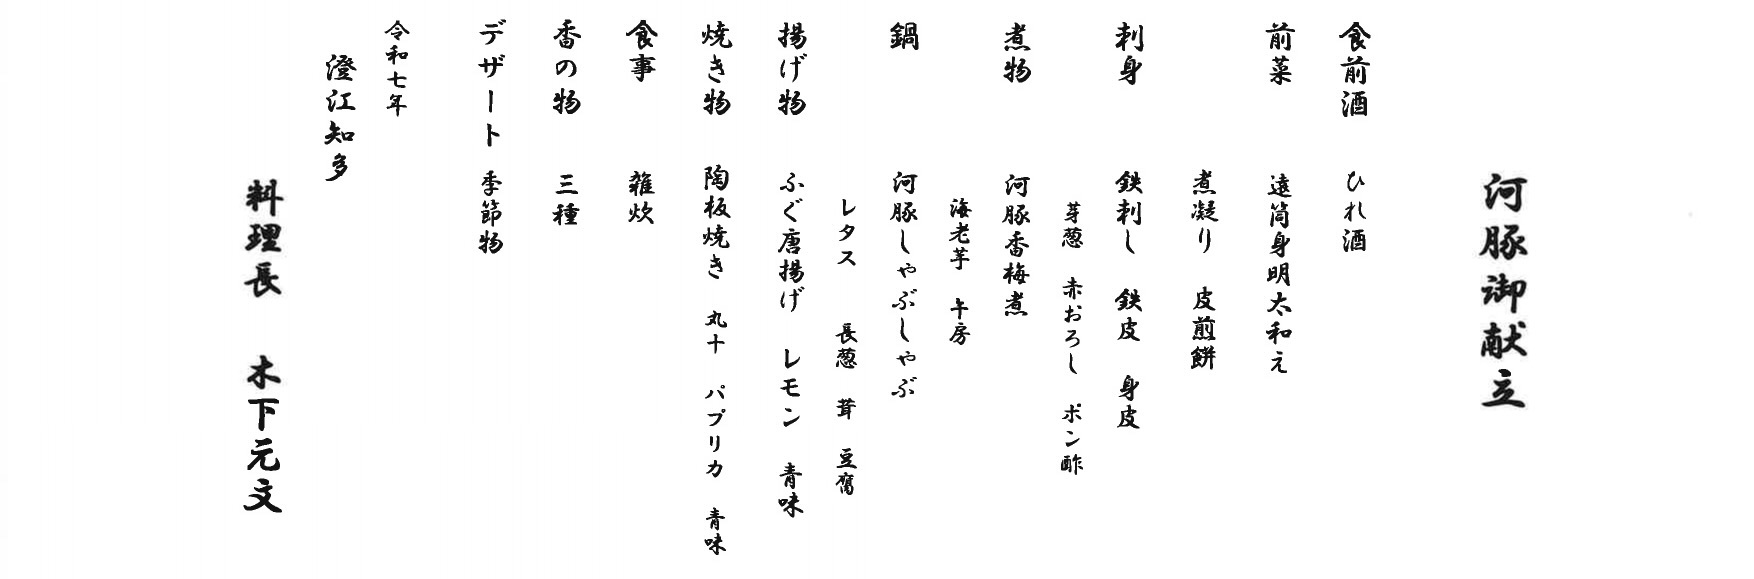 河豚御献立
食前酒 ひれ酒
前菜 遠筒身明太和え
煮凝り 皮煎餅
刺身 鉄刺し 鉄皮 身皮
芽葱 赤おろし ポン酢
煮物 河豚香梅煮
海老芋 午房
鍋 河豚しゃぶしゃぶ
レタス 長葱 茸 豆腐
揚げ物 ふぐ唐揚げ レモン 青味
焼き物 陶板焼き 丸十 パプリカ 青味
食事 雑炊
香の物 三種
デザート 季節物
令和七年
澄江知多
料理長 木下元文